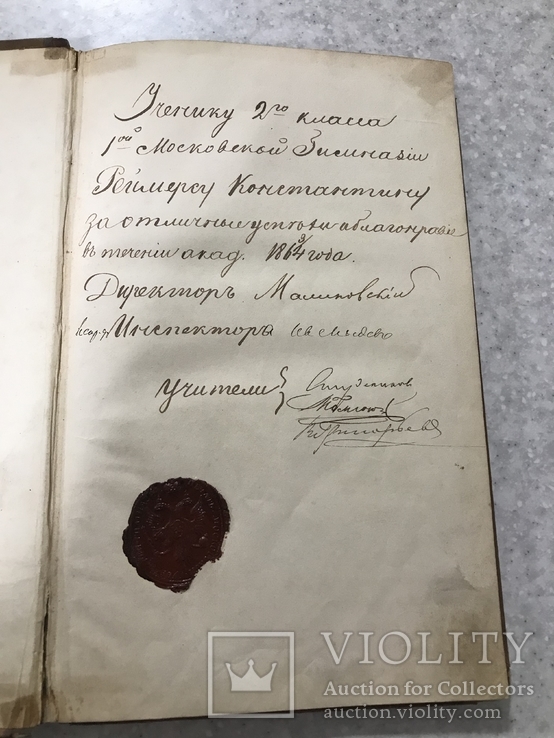 Ученику 2го класса
1ой Московской Гимназіи
Реймерсу Константину
за отличные успѣхи и благонравіе
въ теченіи акад. 186¾ года.
Директоръ Малиновскій
Инспектора
учители
Григорьевъ
VIOLITY
Auction for Collectors
auction.violity.com